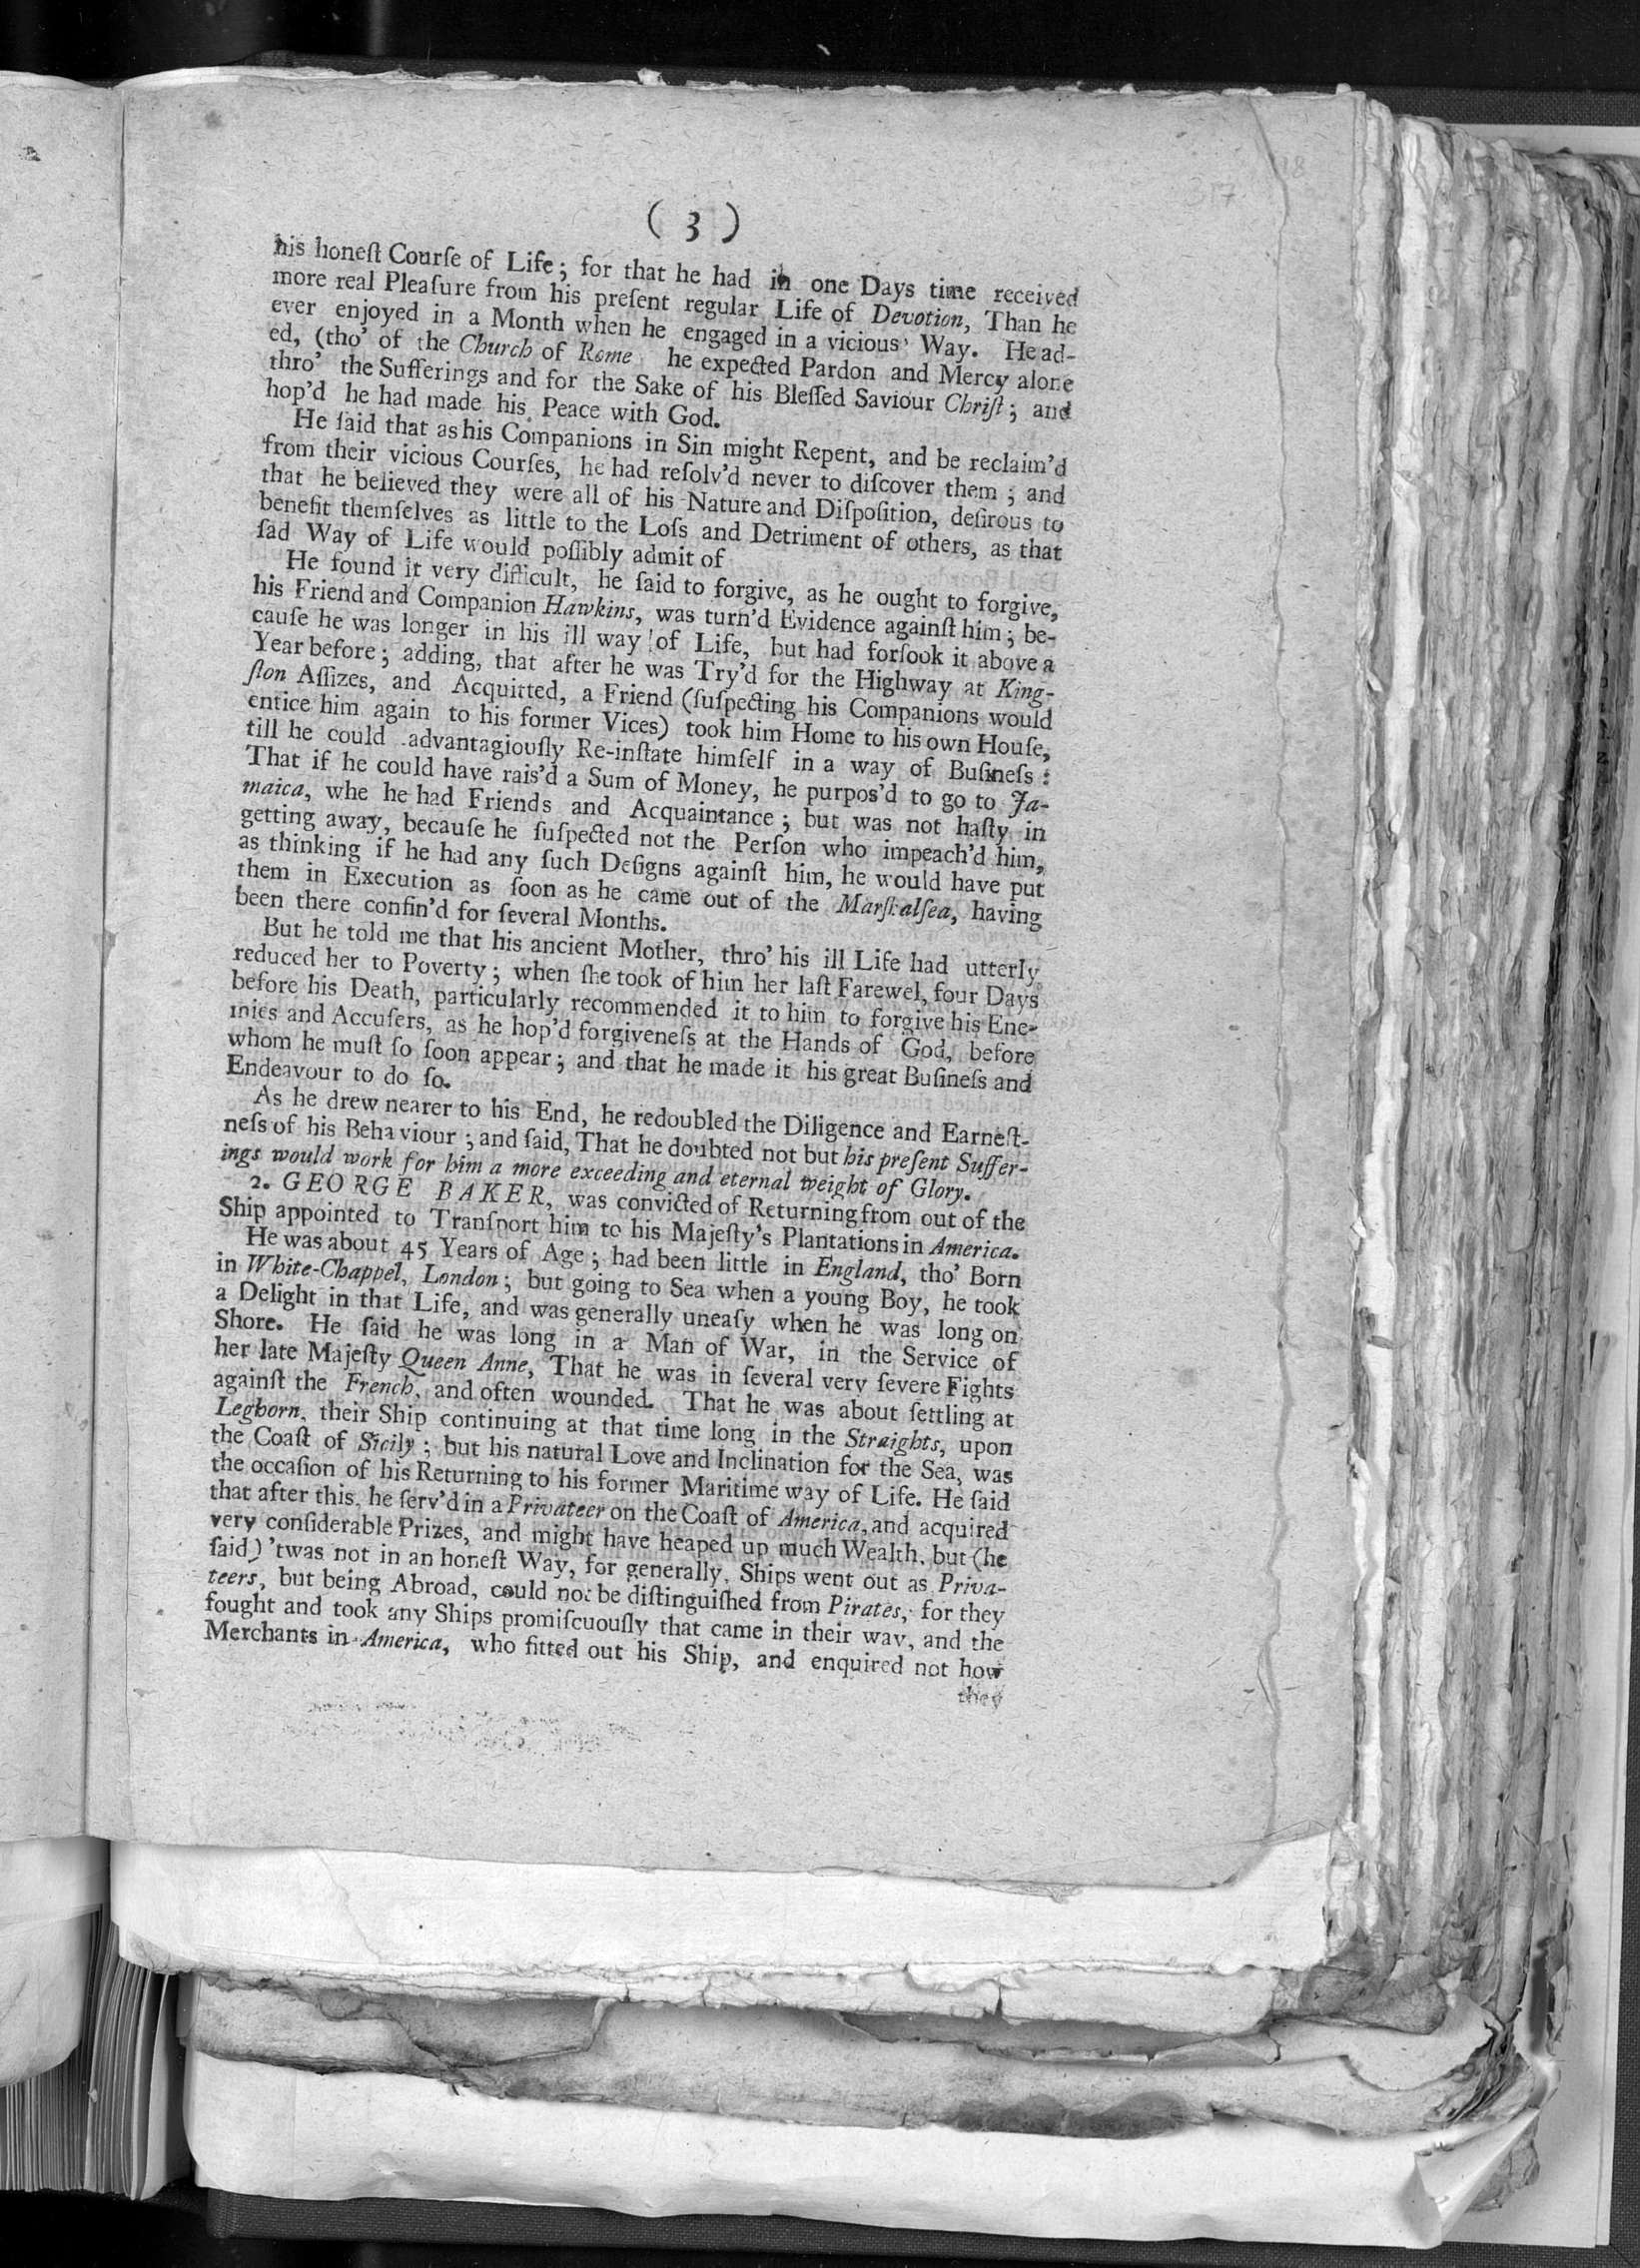 317
18
( 3 )
his honeſt Courſe of Life; for that he had in one Days time received
more real Pleaſure from his preſent regular Life of Devotion, Than he
ever enjoyed in a Month when he engaged in a vicious' Way. He ad-
ed, (tho' of the Church of Rome he expected Pardon and Mercy alone
thro' the Sufferings and for the Sake of his Bleſſed Saviour Chriſt; and
hop'd he had made his Peace with God.
He ſaid that as his Companions in Sin might Repent, and be reclaim'd
from their vicious Courſes, he had reſolv'd never to diſcover them; and
that he believed they were all of his Nature and Diſpoſition, deſirous to
benefit themſelves as little to the Loſs and Detriment of others, as that
ſad Way of Life would poſſibly admit of
He found it very difficult, he ſaid to forgive, as he ought to forgive,
his Friend and Companion Hawkins, was turn'd Evidence againſt him; be-
cauſe he was longer in his ill way of Life, but had forſook it above a
Year before; adding, that after he was Try'd for the Highway at King-
ſton Aſſizes, and Acquitted, a Friend (ſuſpecting his Companions would
entice him again to his former Vices) took him Home to his own Houſe,
till he could advantagiouſly Re-inſtate himſelf in a way of Buſineſs:
That if he could have rais'd a Sum of Money, he purpos'd to go to Ja-
maica, whe he had Friends and Acquaintance; but was not haſty in
getting away, becauſe he ſuſpected not the Perſon who impeach'd him,
as thinking if he had any ſuch Deſigns againſt him, he would have put
them in Execution as ſoon as he came out of the Marſhalſea, having
been there confin'd for ſeveral Months.
But he told me that his ancient Mother, thro' his ill Life had utterly
reduced her to Poverty; when ſhe took of him her laſt Farewel, four Days
before his Death, particularly recommended it to him to forgive his Ene-
mies and Accuſers, as he hop'd forgiveneſs at the Hands of God, before
whom he muſt ſo ſoon appear; and that he made it his great Buſineſs and
Endeavour to do ſo.
As he drew nearer to his End, he redoubled the Diligence and Earneſt-
neſs of his Behaviour; and ſaid, That he doubted not but his preſent Suffer-
ings would work for him a more exceeding and eternal weight of Glory.
2. GEORGE BAKER, was convicted of Returning from out of the
Ship appointed to Tranſport him to his Majeſty's Plantations in America.
He was about 45 Years of Age; had been little in England, tho' Born
in White-Chappel, London; but going to Sea when a young Boy, he took
a Delight in that Life, and was generally uneaſy when he was long on
Shore. He ſaid he was long in a Man of War, in the Service of
her late Majeſty Queen Anne, That he was in ſeveral very ſevere Fights
againſt the French, and often wounded. That he was about ſettling at
Leghorn, their Ship continuing at that time long in the Straights, upon
the Coaſt of Sicily; but his natural Love and Inclination for the Sea, was
the occaſion of his Returning to his former Maritime way of Life. He ſaid
that after this, he ſerv'd in a Privateer on the Coaſt of America, and acquired
very conſiderable Prizes, and might have heaped up much Wealth, but (he
ſaid) 'twas not in an honeſt Way, for generally, Ships went out as Priva-
teers, but being Abroad, could not be diſtinguiſhed from Pirates, for they
fought and took any Ships promiſcuouſly that came in their way, and the
Merchants in America, who fitted out his Ship, and enquired not how
they